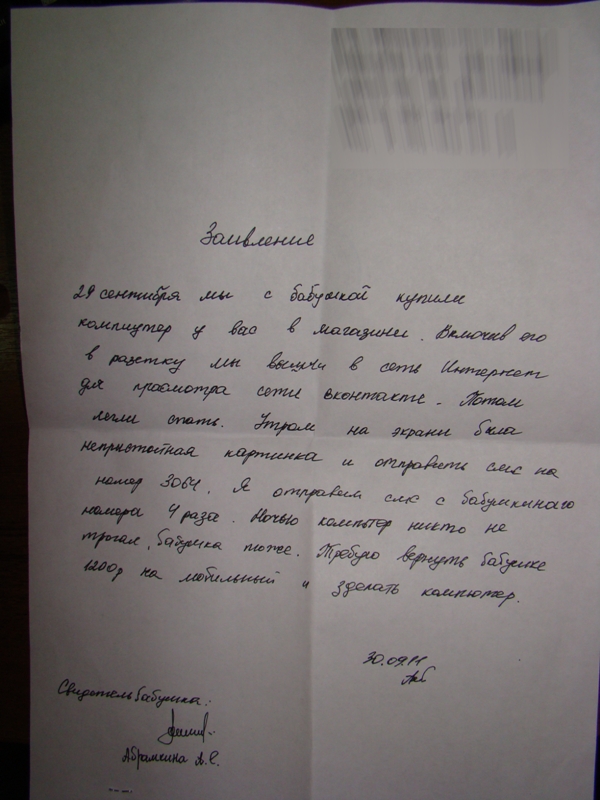 Заявление
29 сентября мы с бабушкой купили
компиутер у вас в магазини. Включив его
в разетку мы вышли в сеть Интернет
для просмотра сети вконтакте. Потом
легли спать. Утром на экрани была
непристойная картинка и отправить смс на
номер 3064. Я отправил смс с бабушкиного
номера 4 раза. Ночью компьтор никто не
трогал, бабушка тоже. Требую вернуть бабушке
1200р на мобильный и зделать компютер.
30.09.11
Свидетель бабушка:
Абрамкина А.С.